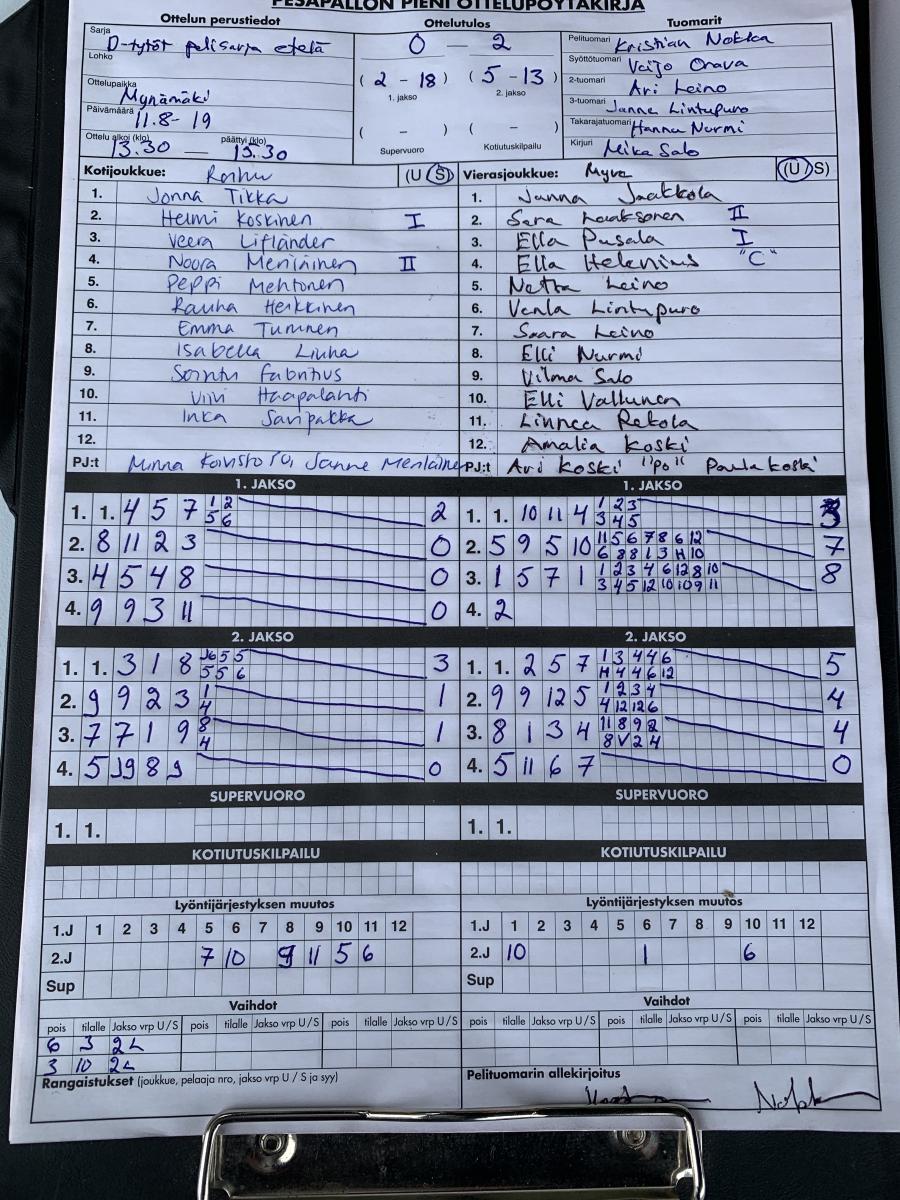 PESÄPALLON PIENI OTTELUPÖYTÄKIRJA
Ottelun perustiedot
Sarja
D-tytöt pelisarja etelä
Lohko
Ottelupaikka
Mynämäki
Päivämäärä
11.8-19
Ottelu alkoi (klo) päättyi (klo)
13.30 — 15.30
Ottelutulos
0 — 2
(2 - 18) (5 - 13)
1. jakso 2. jakso
( - ) ( - )
Supervuoro Kotiutuskilpailu
Tuomarit
Pelituomari Kristian Nokka
Syöttötuomari Veijo Orava
2-tuomari Ari Leino
3-tuomari Janne Lintupuro
Takarajatuomari Hannu Nurmi
Kirjuri Mika Salo
Kotijoukkue: (U S)
1. Jonna Tikka
2. Helmi Koskinen I
3. Veera Lifländer
4. Noora II
5. Peppi Mehtonen
6. Rauha Heikkinen
7. Emma Tuminen
8. Isabella
9. Sointu Fabritius
10. Viivi Haapalahti
11. Inka
12.
PJ:t Minna Janne
Vierasjoukkue: Myve (U S)
1. Jaakkola
2. Sara Laaksonen II
3. Ella Pusala I
4. Ella Helenius "C"
5. Netta Leino
6. Venla Lintupuro
7. Saara Leino
8. Elli Nurmi
9. Vilma Salo
10. Elli Valtunen
11. Linnea Rekola
12. Amalia Koski
PJ:t Ari Koski "Po" Paula Koski
1. JAKSO
1. 1. 4 5 7 1 2 2
5 6
2. 8 11 2 3 0
3. 4 5 4 8 0
4. 9 9 3 11 0
1. JAKSO
1. 1. 10 11 4 1 2 3 3
3 4 5
2. 5 9 5 10 11 5 6 7 8 6 12 7
6 8 8 1 3 H 10
3. 1 5 7 1 1 2 3 4 6 12 8 10 8
3 4 5 12 10 10 9 11
4. 2
2. JAKSO
1. 1. 3 1 8 5 5 3
5 5 6
2. 9 9 2 3 1 1
4
3. 7 7 1 9 8 1
4
4. 5 J9 8 9 0
2. JAKSO
1. 1. 2 5 7 1 3 4 4 6 5
H 4 4 6 12
2. 9 9 12 5 1 2 3 4 4
4 12 12 6
3. 8 1 3 4 11 8 9 2 4
8 V 2 4
4. 5 11 6 7 0
SUPERVUORO
1. 1.
SUPERVUORO
1. 1.
KOTIUTUSKILPAILU
KOTIUTUSKILPAILU
Lyöntijärjestyksen muutos
1.J 1 2 3 4 5 6 7 8 9 10 11 12
2.J 7 10 9 11 5 6
Sup
Lyöntijärjestyksen muutos
1.J 1 2 3 4 5 6 7 8 9 10 11 12
2.J 10 1 6
Sup
Vaihdot
pois tilalle Jakso vrp U/S pois tilalle Jakso vrp U/S pois tilalle Jakso vrp U/S
6 3 2L
3 10 2L
Vaihdot
pois tilalle Jakso vrp U/S pois tilalle Jakso vrp U/S pois tilalle Jakso vrp U/S
Rangaistukset (joukkue, pelaaja nro, jakso vrp U / S ja syy)
Pelituomarin allekirjoitus